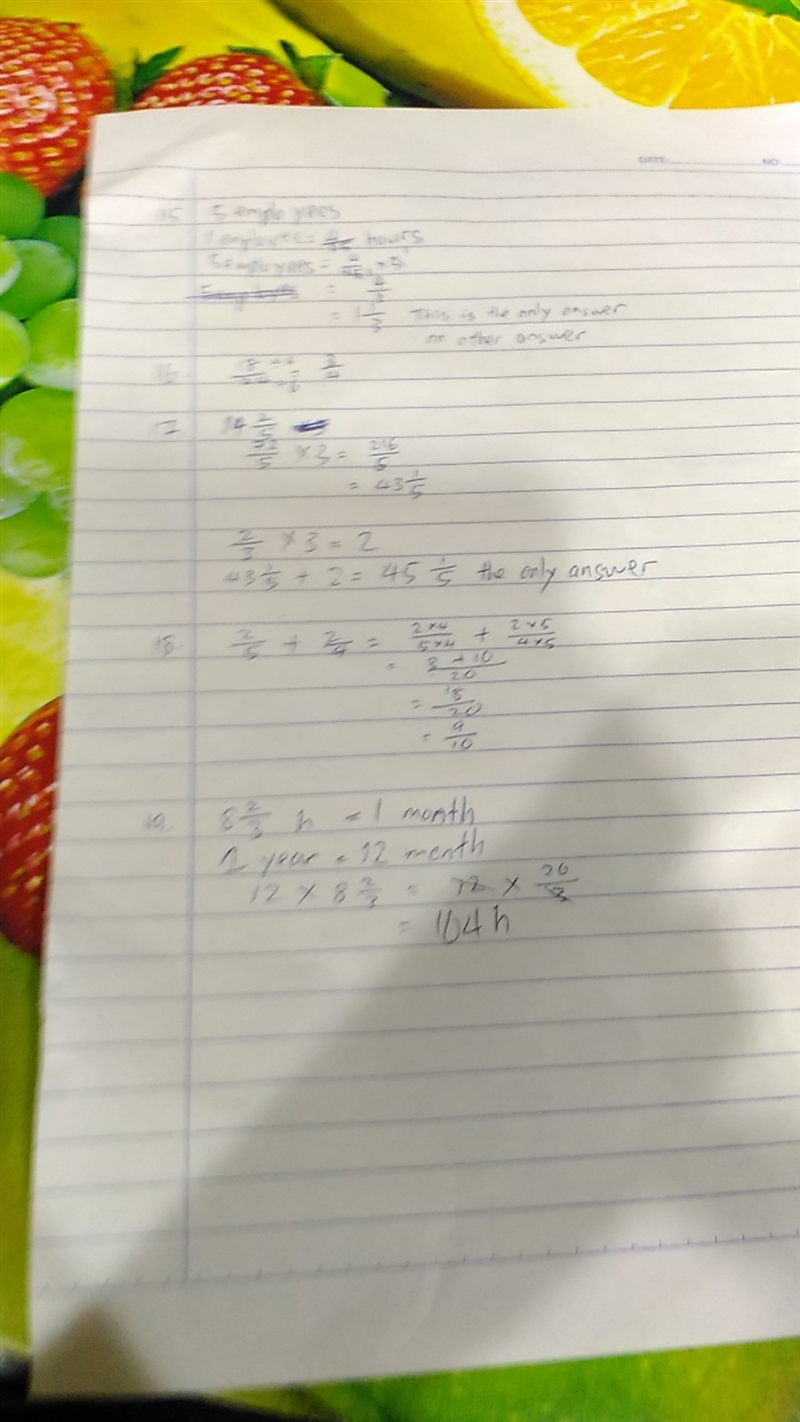 DATE: NO
15 5 employees
1 employee = hours
5 employees = × 5
= 4/3
= 1 1/3 This is the only answer
no other answer
16 18/24 ÷6/÷6 = 3/4
17 14 2/5
72/5 × 3 = 216/5
= 43 1/5
2/3 × 3 = 2
43 1/5 + 2 = 45 1/5 the only answer
18. 2/5 + 2/4 = 2×4/5×4 + 2×5/4×5
= 8 + 10/20
= 18/20
= 9/10
19. 8 2/3 h = 1 month
1 year = 12 month
12 × 8 2/3 = 12 × 26/3
= 104 h